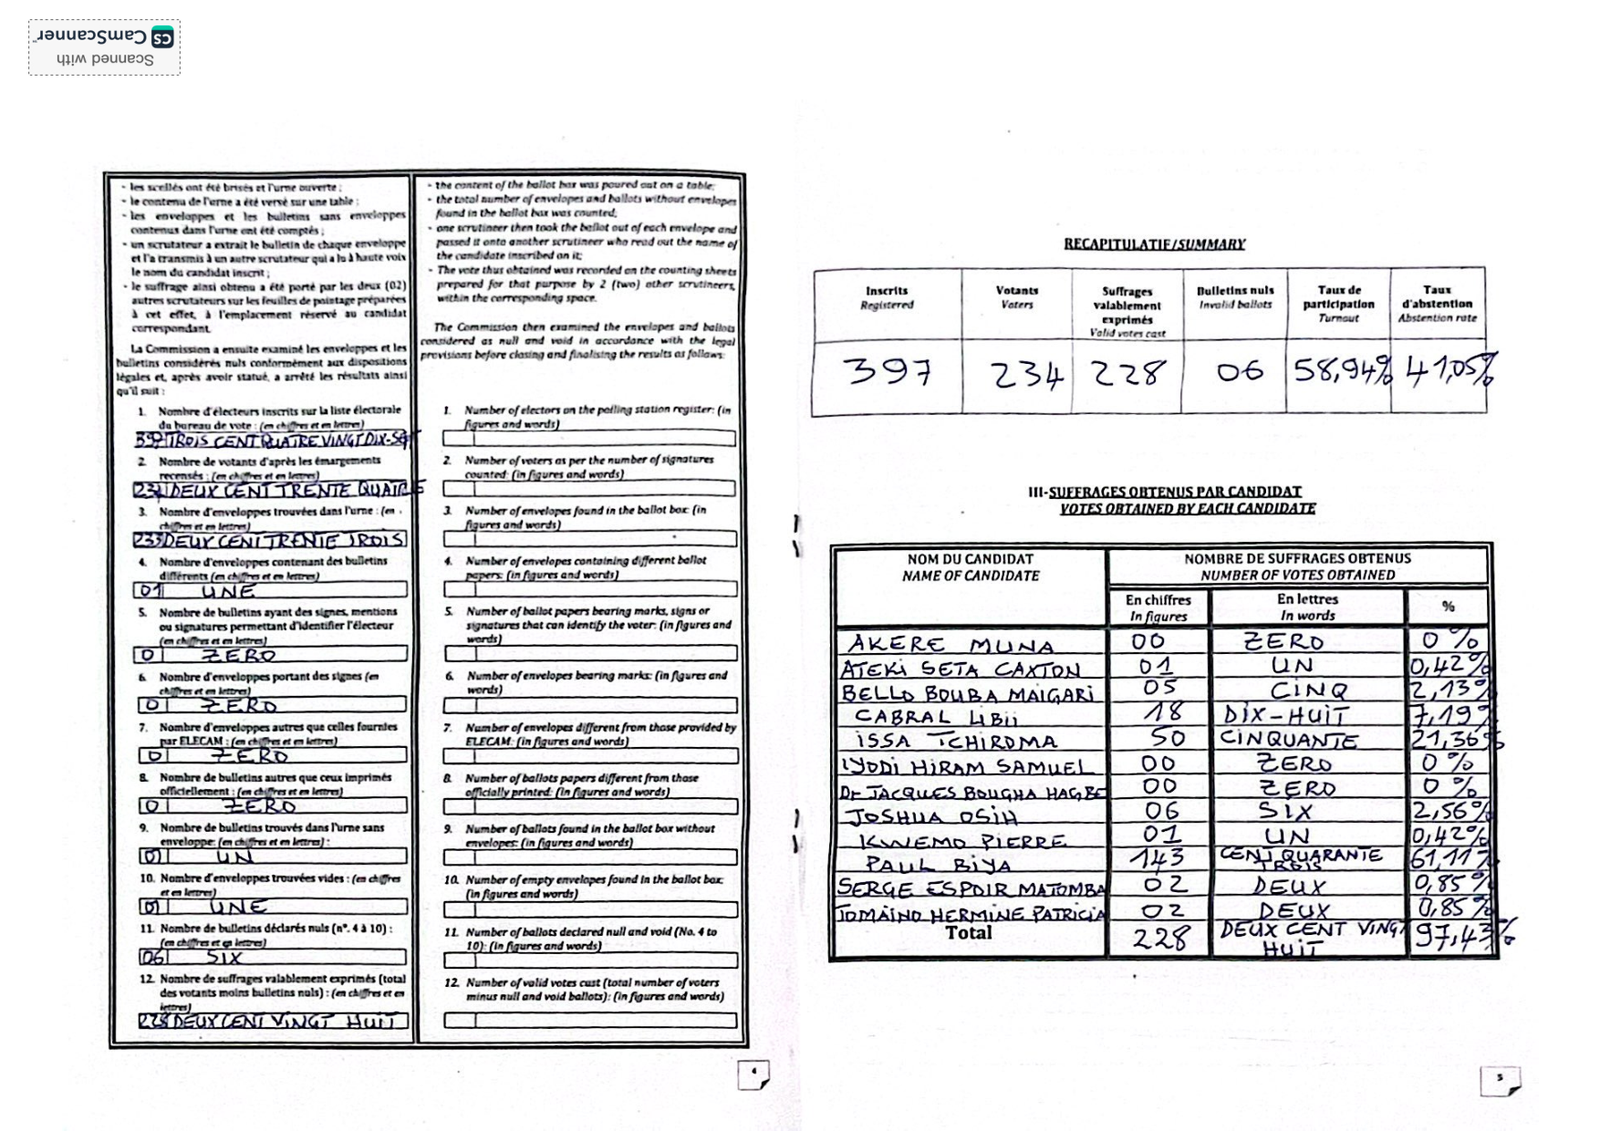 Scanned with
CS CamScanner
- les scellés ont été brisés et l'urne ouverte ;
- le contenu de l'urne a été versé sur une table ;
- les enveloppes et les bulletins sans enveloppes
contenus dans l'urne ont été comptés ;
- un scrutateur a extrait le bulletin de chaque enveloppe
et l'a transmis à un autre scrutateur qui a lu à haute voix
le nom du candidat inscrit ;
- le suffrage ainsi obtenu a été porté par les deux (02)
autres scrutateurs sur les feuilles de pointage préparées
à cet effet, à l'emplacement réservé au candidat
correspondant.
La Commission a ensuite examiné les enveloppes et les
bulletins considérés nuls conformément aux dispositions
légales et, après avoir statué, a arrêté les résultats ainsi
qu'il suit :
1. Nombre d'électeurs inscrits sur la liste électorale
du bureau de vote : (en chiffres et en lettres)
397 TROIS CENT QUATRE VINGT DIX-SEPT
2. Nombre de votants d'après les émargements
recensés : (en chiffres et en lettres)
234 DEUX CENT TRENTE QUATRE
3. Nombre d'enveloppes trouvées dans l'urne : (en
chiffres et en lettres)
233 DEUX CENT TRENTE TROIS
4. Nombre d'enveloppes contenant des bulletins
différents (en chiffres et en lettres)
01 UNE
5. Nombre de bulletins ayant des signes, mentions
ou signatures permettant d'identifier l'électeur
(en chiffres et en lettres)
0 ZERO
6. Nombre d'enveloppes portant des signes (en
chiffres et en lettres)
0 ZERO
7. Nombre d'enveloppes autres que celles fournies
par ELECAM : (en chiffres et en lettres)
0 ZERO
8. Nombre de bulletins autres que ceux imprimés
officiellement : (en chiffres et en lettres)
0 ZERO
9. Nombre de bulletins trouvés dans l'urne sans
enveloppe: (en chiffres et en lettres) :
01 UN
10. Nombre d'enveloppes trouvées vides : (en chiffres
et en lettres)
01 UNE
11. Nombre de bulletins déclarés nuls (n°. 4 à 10) :
(en chiffres et en lettres)
06 SIX
12. Nombre de suffrages valablement exprimés (total
des votants moins bulletins nuls) : (en chiffres et en
lettres)
228 DEUX CENT VINGT HUIT
- the content of the ballot box was poured out on a table;
- the total number of envelopes and ballots without envelopes
found in the ballot box was counted;
- one scrutineer then took the ballot out of each envelope and
passed it onto another scrutineer who read out the name of
the candidate inscribed on it;
- The vote thus obtained was recorded on the counting sheets
prepared for that purpose by 2 (two) other scrutineers,
within the corresponding space.
The Commission then examined the envelopes and ballots
considered as null and void in accordance with the legal
provisions before closing and finalising the results as follows:
1. Number of electors on the polling station register: (in
figures and words)
2. Number of voters as per the number of signatures
counted: (in figures and words)
3. Number of envelopes found in the ballot box: (in
figures and words)
4. Number of envelopes containing different ballot
papers: (in figures and words)
5. Number of ballot papers bearing marks, signs or
signatures that can identify the voter: (in figures and
words)
6. Number of envelopes bearing marks: (in figures and
words)
7. Number of envelopes different from those provided by
ELECAM: (in figures and words)
8. Number of ballots papers different from those
officially printed: (in figures and words)
9. Number of ballots found in the ballot box without
envelopes: (in figures and words)
10. Number of empty envelopes found in the ballot box:
(in figures and words)
11. Number of ballots declared null and void (No. 4 to
10): (in figures and words)
12. Number of valid votes cast (total number of voters
minus null and void ballots): (in figures and words)
4
RECAPITULATIF/SUMMARY
Inscrits Registered | Votants Voters | Suffrages valablement exprimés Valid votes cast | Bulletins nuls Invalid ballots | Taux de participation Turnout | Taux d'abstention Abstention rate
397 234 228 06 58,94% 41,05%
III-SUFFRAGES OBTENUS PAR CANDIDAT
VOTES OBTAINED BY EACH CANDIDATE
NOM DU CANDIDAT NOMBRE DE SUFFRAGES OBTENUS
NAME OF CANDIDATE NUMBER OF VOTES OBTAINED
En chiffres En lettres %
In figures In words
AKERE MUNA 00 ZERO 0 %
ATEKI SETA CAXTON 01 UN 0,42%
BELLO BOUBA MAIGARI 05 CINQ 2,13%
CABRAL LIBII 18 DIX-HUIT 7,19%
ISSA TCHIROMA 50 CINQUANTE 21,36%
IYODI HIRAM SAMUEL 00 ZERO 0 %
Dr JACQUES BOUGHA HAGBE 00 ZERO 0 %
JOSHUA OSIH 06 SIX 2,56%
KWEMO PIERRE 01 UN 0,42%
PAUL BIYA 143 CENT QUARANTE TROIS 61,11%
SERGE ESPOIR MATOMBA 02 DEUX 0,85%
TOMAINO HERMINE PATRICIA 02 DEUX 0,85%
Total 228 DEUX CENT VINGT HUIT 97,43%
5